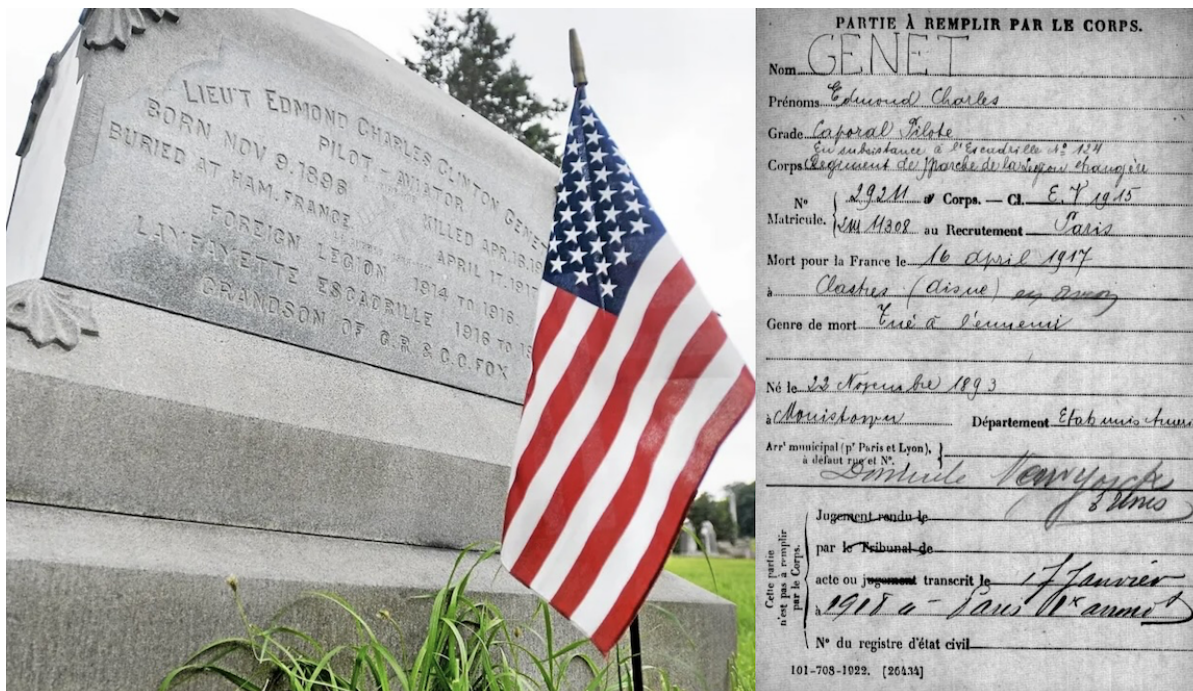 LIEU'T EDMOND CHARLES CLINTON GENE
PILOT - AVIATOR
BORN NOV 9.1896 KILLED APR.16.19
BURIED AT HAM. FRANCE APRIL 17.1917
FOREIGN LEGION 1914 TO 1916.
LAYFAYETTE ESCADRILLE 1916 TO
GRANDSON OF G.R. & C.C. FOX
PARTIE À REMPLIR PAR LE CORPS.
Nom GENET
Prénoms Edmond Charles
Grade Caporal Pilote
En subsistance à l'Escadrille No 124
Corps Régiment de Marche de la Légion étrangère
No Matricule. 29211 au Corps. — Cl. E. V 1915
11308 au Recrutement Paris
Mort pour la France le 16 april 1917
à Clastres (aisne)
Genre de mort Tué à l'ennemi
Né le 22 Novembre 1893
à Département Etats unis
Arrt municipal (pr Paris et Lyon),
à défaut rue et No.
Domicile New Yorck
Jugement rendu le
par le Tribunal de
acte ou jugement transcrit le 17 Janvier
à 1918 à Paris
No du registre d'état civil
Cette partie n'est pas à remplir par le Corps.
101-708-1922. [26434]